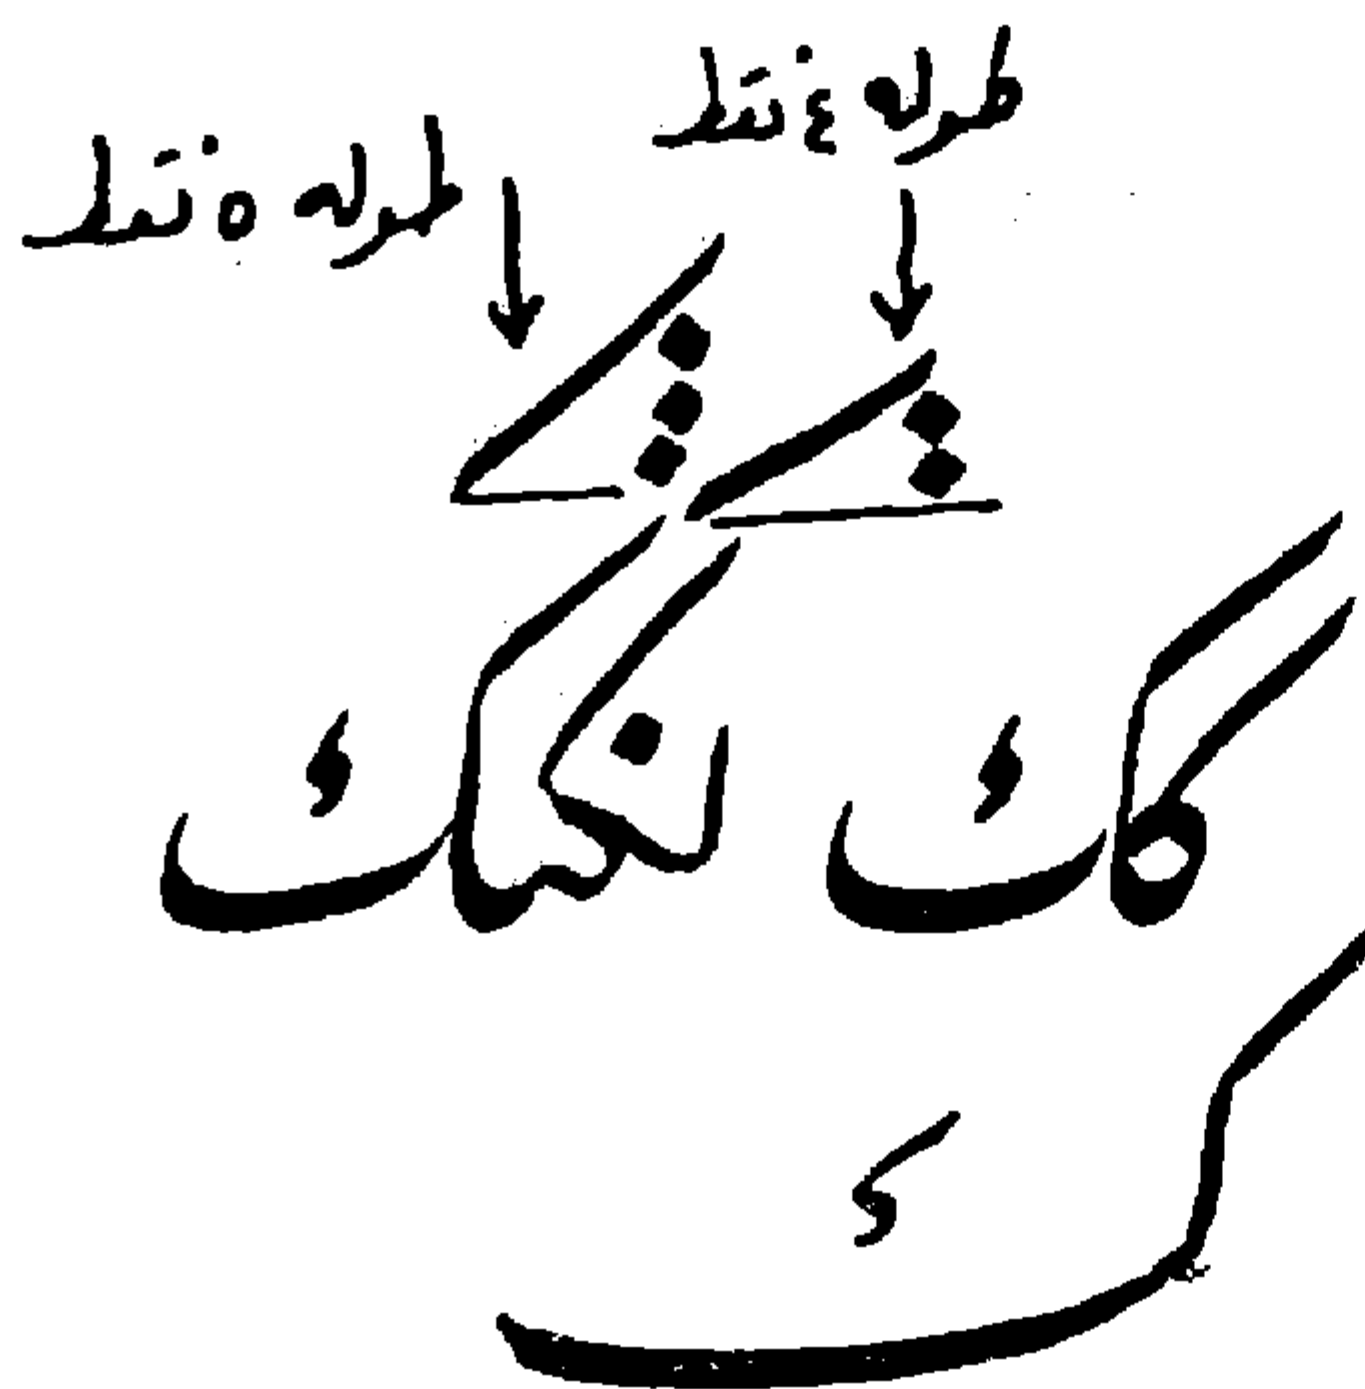 طوله ٤ نقط
طوله ٥ نقط
كك
ك